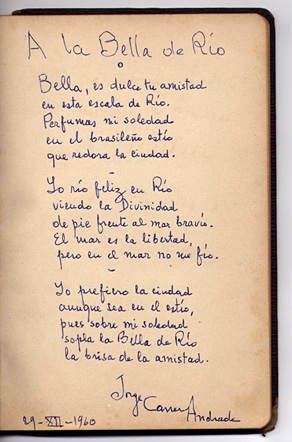 A la Bella de Río
Bella, es dulce tu amistad
en esta escala de Río.
Perfumas mi soledad
en el brasileño estío
que redora la ciudad.
Yo río feliz en Río
viendo la Divinidad
de pie frente al mar bravío.
El mar es la libertad,
pero en el mar no me fío.
Yo prefiero la ciudad
aunque sea en el estío,
pues sobre mi soledad
sopla la Bella de Río
la brisa de la amistad.
Jorge Carrera
Andrade
29-XII-1960